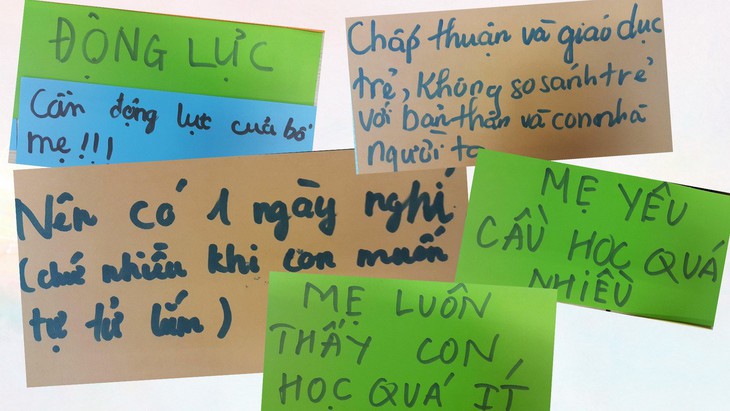 ĐỘNG LỰC
Cần động lực của bố
mẹ!!!
Chấp thuận và giáo dục
trẻ, không so sánh trẻ
với bản thân và con nhà
người ta
Nên có 1 ngày nghỉ
(chứ nhiều khi con muốn
tự tử lắm)
MẸ YÊU
CẦU HỌC QUÁ
NHIỀU
MẸ LUÔN
THẤY CON
HỌC QUÁ ÍT